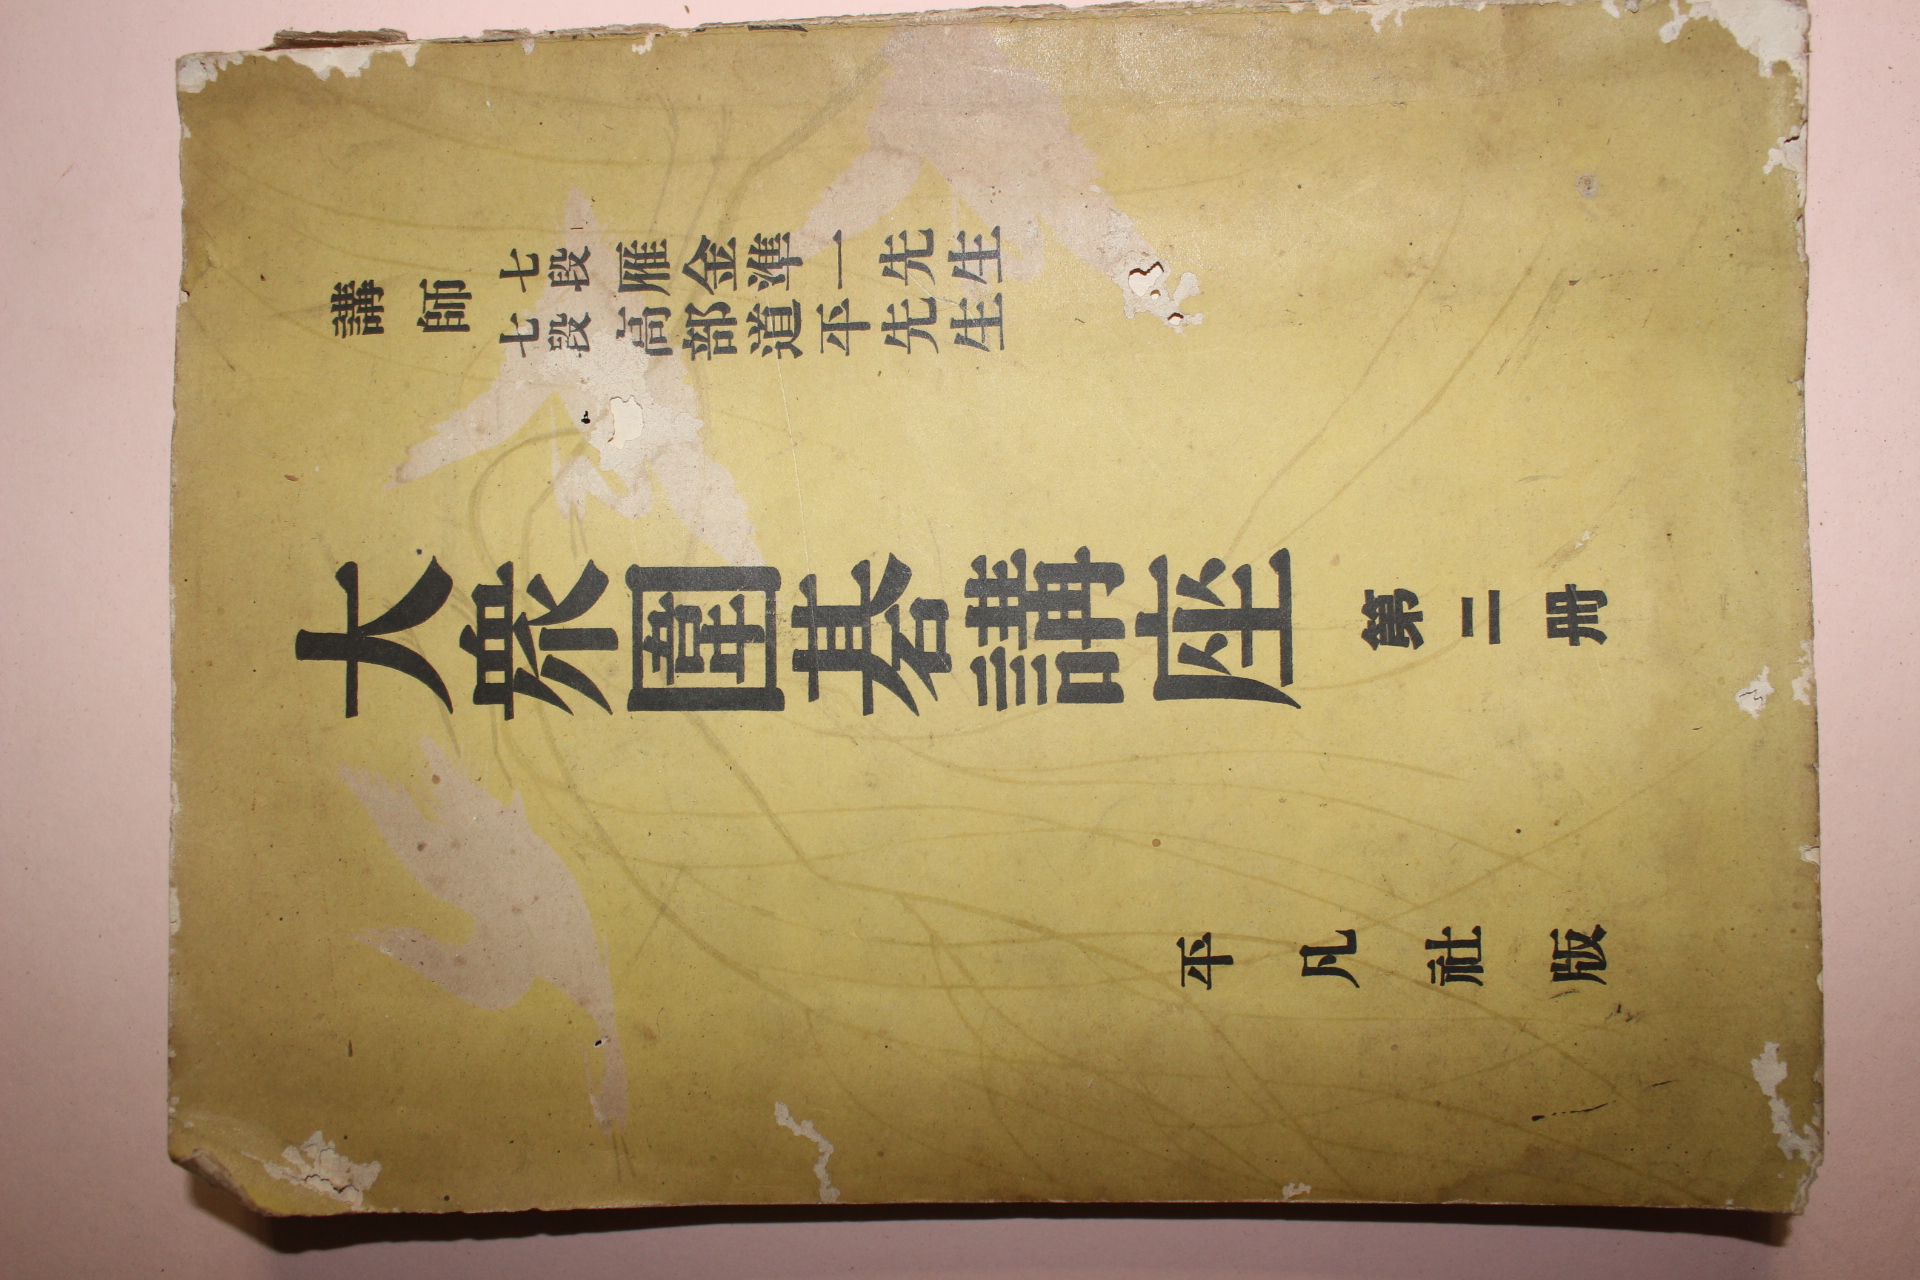 講師
七段 雁金準一先生
七段 高部道平先生
大衆圍碁講座 第二冊
平凡社版